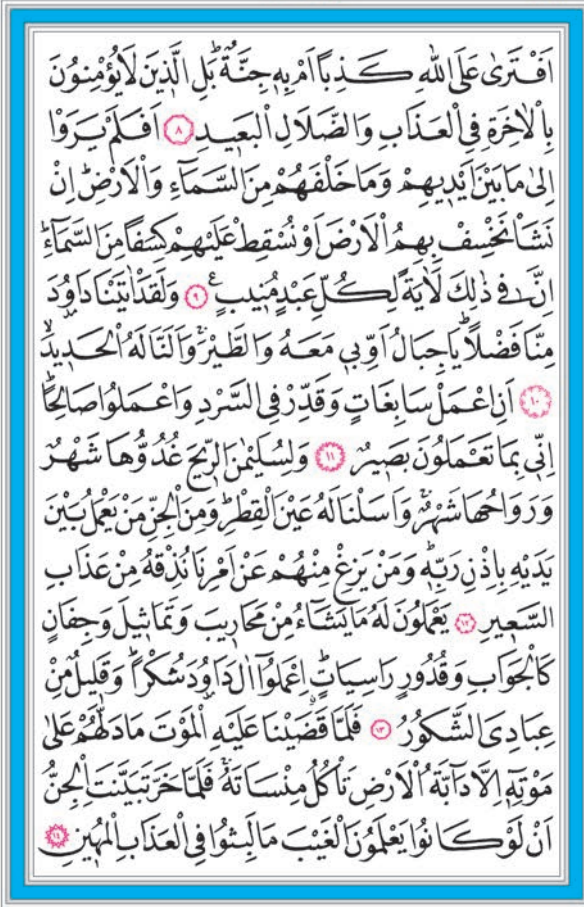 اَفْتَرٰى عَلَى اللّٰهِ كَذِبًا اَمْ بِه۪ جِنَّةٌۜ بَلِ الَّذ۪ينَ لَا يُؤْمِنُونَ
بِالْاٰخِرَةِ فِي الْعَذَابِ وَالضَّلَالِ الْبَع۪يدِ ﴿٨﴾ اَفَلَمْ يَرَوْا
اِلٰى مَا بَيْنَ اَيْد۪يهِمْ وَمَا خَلْفَهُمْ مِنَ السَّمَٓاءِ وَالْاَرْضِۜ اِنْ
نَشَأْ نَخْسِفْ بِهِمُ الْاَرْضَ اَوْ نُسْقِطْ عَلَيْهِمْ كِسَفًا مِنَ السَّمَٓاءِۜ
اِنَّ ف۪ي ذٰلِكَ لَاٰيَةً لِكُلِّ عَبْدٍ مُن۪يبٍ۟ ﴿٩﴾ وَلَقَدْ اٰتَيْنَا دَاوُ۫دَ
مِنَّا فَضْلًاۜ يَا جِبَالُ اَوِّب۪ي مَعَهُ وَالطَّيْرَۚ وَاَلَنَّا لَهُ الْحَد۪يدَۙ
﴿١٠﴾ اَنِ اعْمَلْ سَابِغَاتٍ وَقَدِّرْ فِي السَّرْدِ وَاعْمَلُوا صَالِحًاۜ
اِنّ۪ي بِمَا تَعْمَلُونَ بَص۪يرٌ ﴿١١﴾ وَلِسُلَيْمٰنَ الرّ۪يحَ غُدُوُّهَا شَهْرٌ
وَرَوَاحُهَا شَهْرٌۚ وَاَسَلْنَا لَهُ عَيْنَ الْقِطْرِۜ وَمِنَ الْجِنِّ مَنْ يَعْمَلُ بَيْنَ
يَدَيْهِ بِاِذْنِ رَبِّه۪ۜ وَمَنْ يَزِغْ مِنْهُمْ عَنْ اَمْرِنَا نُذِقْهُ مِنْ عَذَابِ
السَّع۪يرِ ﴿١٢﴾ يَعْمَلُونَ لَهُ مَا يَشَٓاءُ مِنْ مَحَار۪يبَ وَتَمَاث۪يلَ وَجِفَانٍ
كَالْجَوَابِ وَقُدُورٍ رَاسِيَاتٍۜ اِعْمَلُٓوا اٰلَ دَاوُ۫دَ شُكْرًاۜ وَقَل۪يلٌ مِنْ
عِبَادِيَ الشَّكُورُ ﴿١٣﴾ فَلَمَّا قَضَيْنَا عَلَيْهِ الْمَوْتَ مَا دَلَّهُمْ عَلٰى
مَوْتِه۪ٓ اِلَّا دَٓابَّةُ الْاَرْضِ تَأْكُلُ مِنْسَاَتَهُۚ فَلَمَّا خَرَّ تَبَيَّنَتِ الْجِنُّ
اَنْ لَوْ كَانُوا يَعْلَمُونَ الْغَيْبَ مَا لَبِثُوا فِي الْعَذَابِ الْمُه۪ينِۜ ﴿١٤﴾